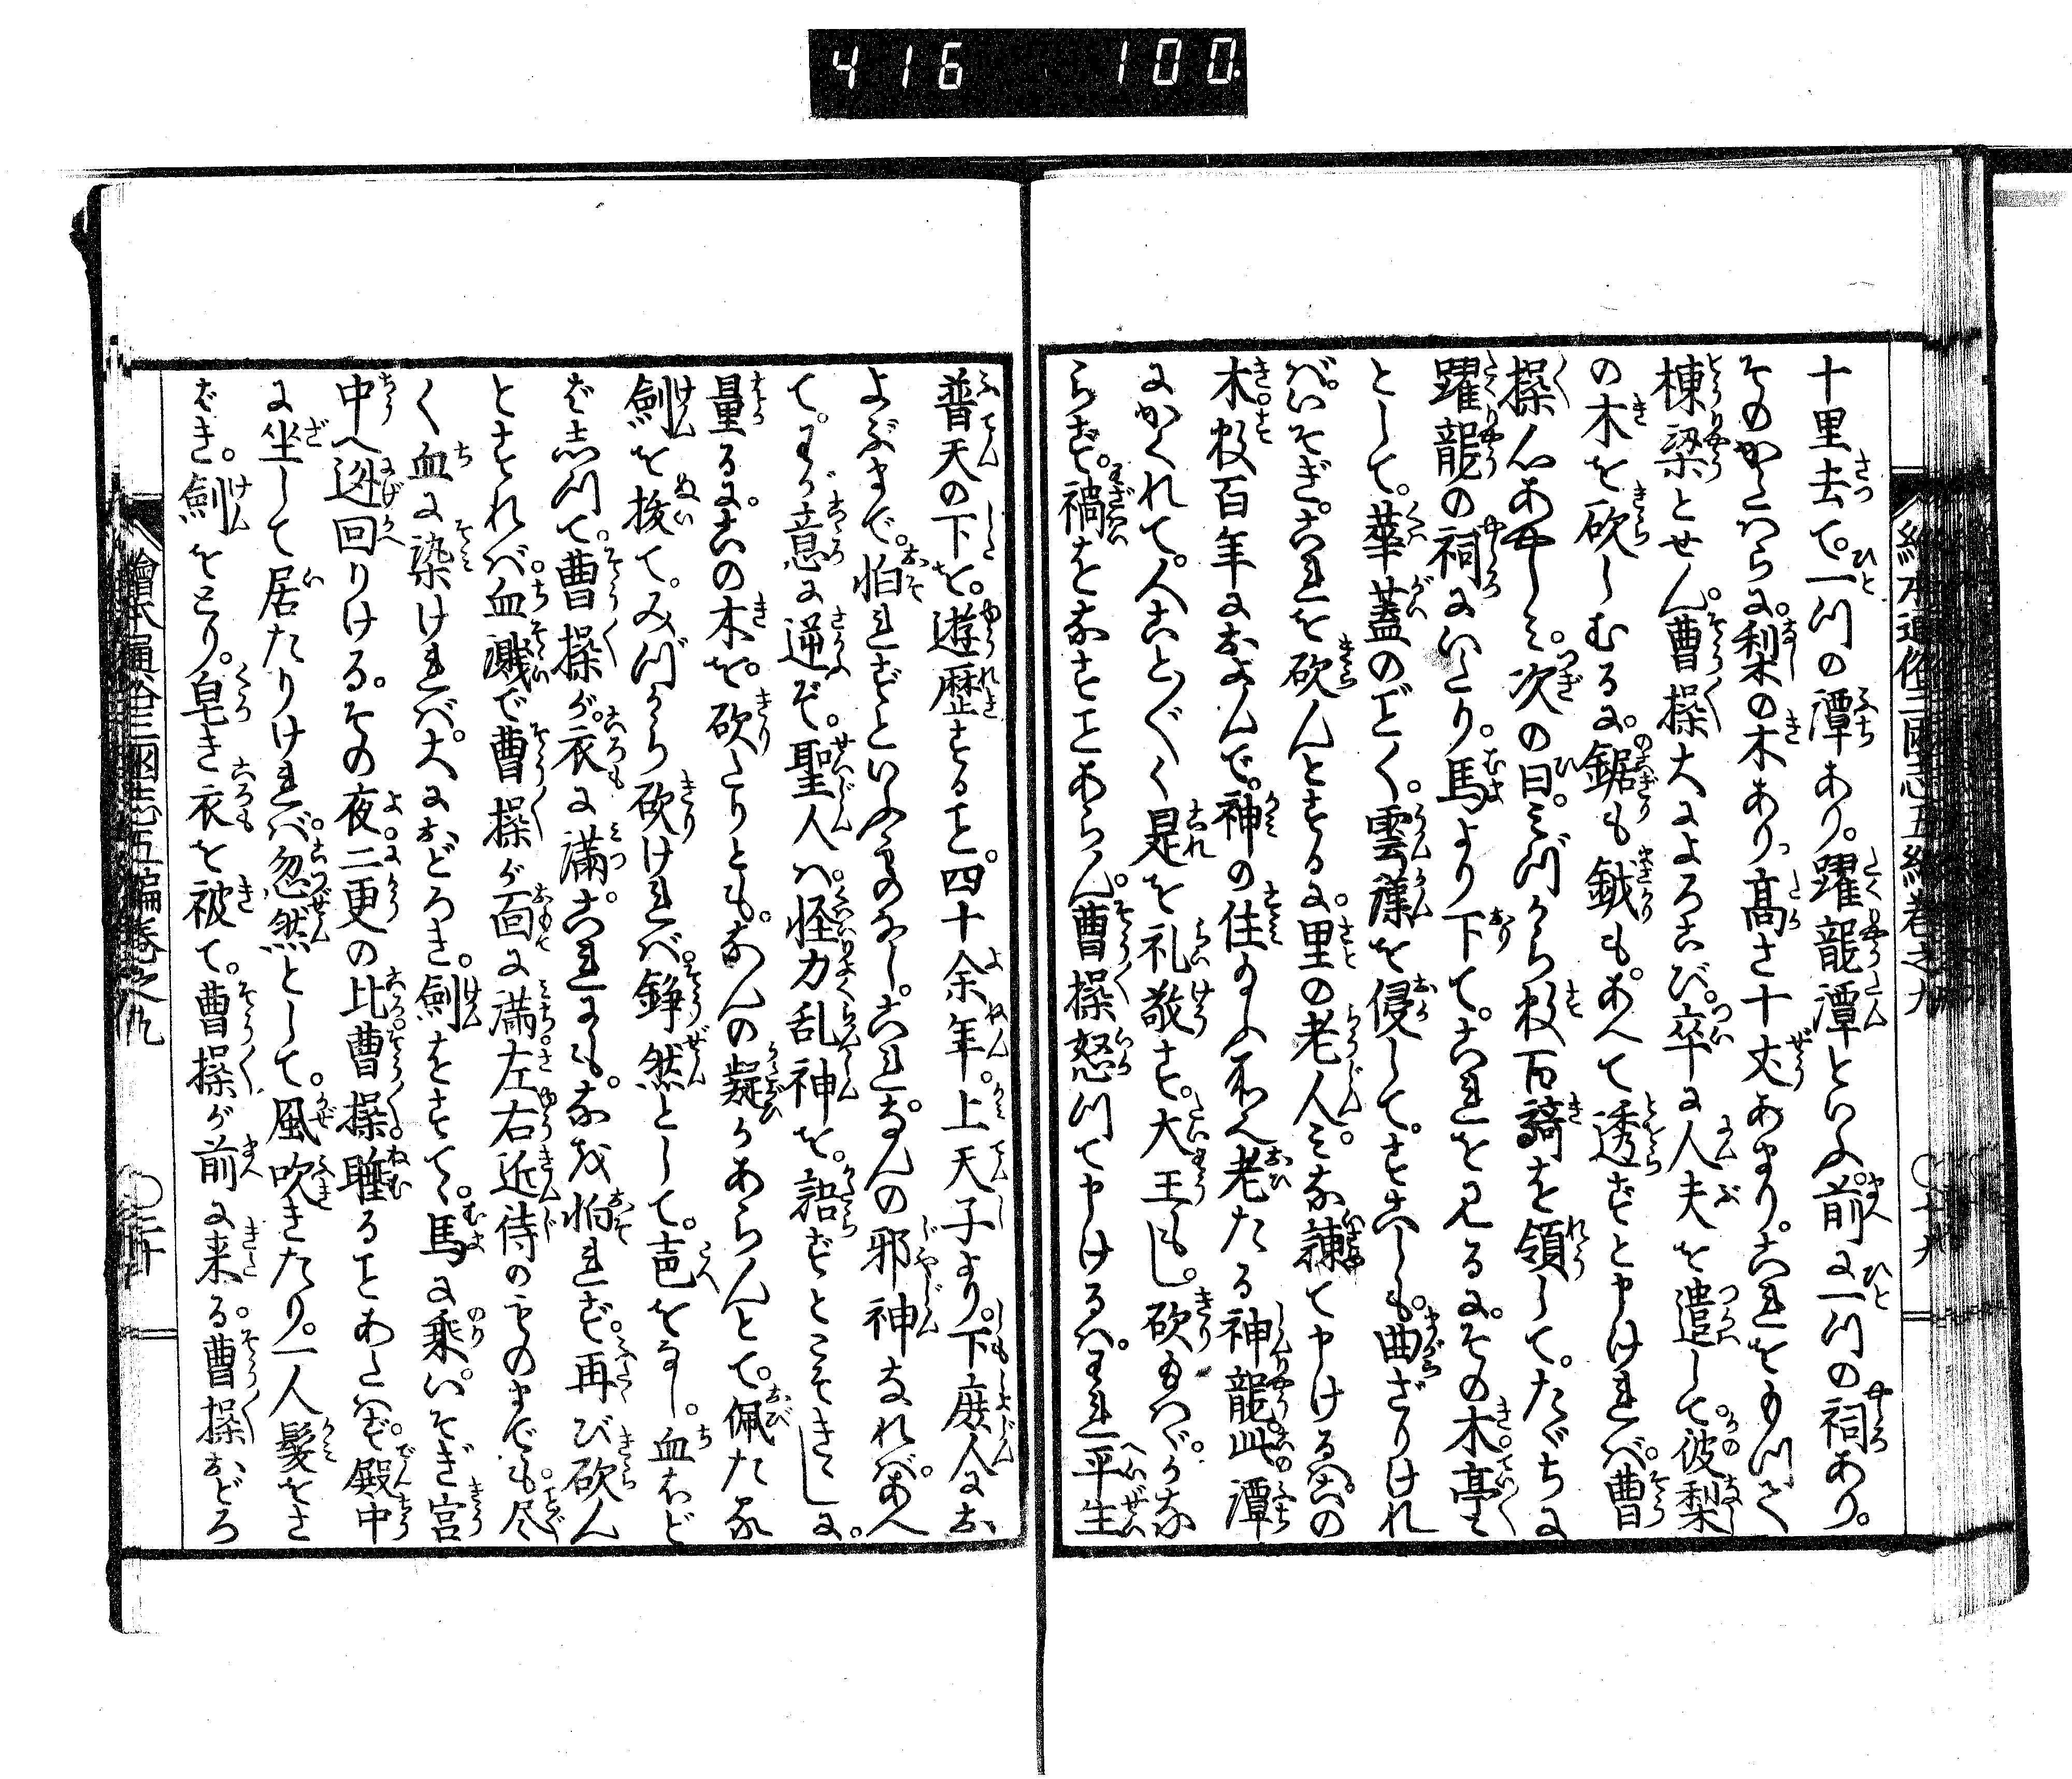 416 100.
繪本通俗三國志五編巻之九 ○十九
十里去て。一つの潭あり。躍龍潭といふ。前に一つの祠あり。
そのかたはらに。梨の木あり。高さ十丈あまり。これをもつて
棟梁とせん。曹操大によろこび。卒に人夫を遣して。彼梨
の木を砍しむるに。鋸も鉞も。あへて透ずと申ければ。曹
操心あやしみ。次の日。みづから数百騎を領して。たゞちに
躍龍の祠にいたり。馬より下て。これを見るに。その木亭々
として。華蓋のごとく。雲漢を侵して。すこしも。曲ざりけれ
ば。いそぎ。これを砍んとするに。里の老人。みな諫て申けるは。この
木数百年におよんで。神の住たまふ所。老たる神龍。此潭
にかくれて。人ことごとく是を礼敬す。大王もし。砍たまはゞ。かな
らず。禍をなすことあらん。曹操怒つて申けるは。われ平生
普天の下を。遊歴すること。四十余年。上天子より。下庶人にお
よぶまで。怕れずといふものなし。これなんの邪神なれば。あへ
て。わが意に逆ぞ。聖人は。怪力乱神を。語ずとこそきゝしに。
量るに。この木を。砍たりとも。なんの凝かあらんとて。佩たる
劍を抜て。みづから砍ければ。錚然として。声をなし。血ほど
ばしつて。曹操が。衣に満。これにも。なを怕れず。再び砍ん
とすれば。血濺で曹操が面に満。左右近侍のものまでも。尽
く血に染ければ。大におどろき。劍をすて。馬に乗。いそぎ宮
中へ迯回りける。その夜。二更の比。曹操睡ることあたはず。殿中
に坐して居たりければ。忽然として。風吹きたり。一人髪をさ
ばき。劍をとり。皂き衣を被て。曹操が前に来る。曹操おどろ
繪本通俗三國志五編巻之九 ○二十